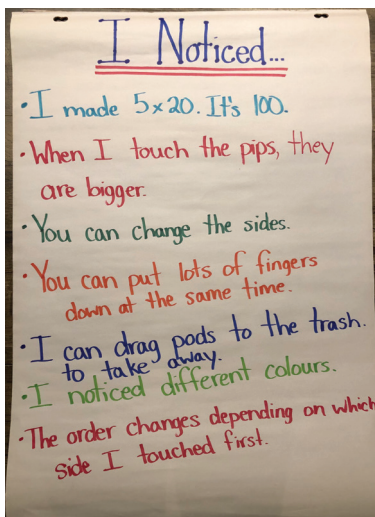 I Noticed...
• I made 5x20. It's 100.
• When I touch the pips, they
are bigger.
• You can change the sides.
• You can put lots of fingers
down at the same time.
• I can drag pods to the trash.
to take away.
• I noticed different colours.
• The order changes depending on which
side I touched first.